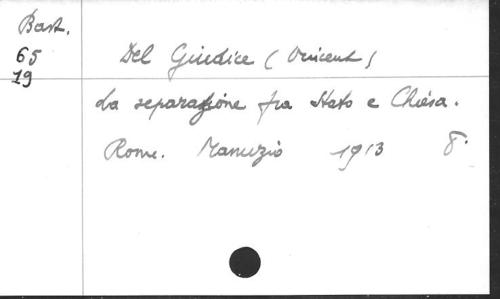 Bast.
65
19
Del Giudice (Vincent)
La separazione fra Stato e Chiesa.
Rome. Manuzio 1913 8°.